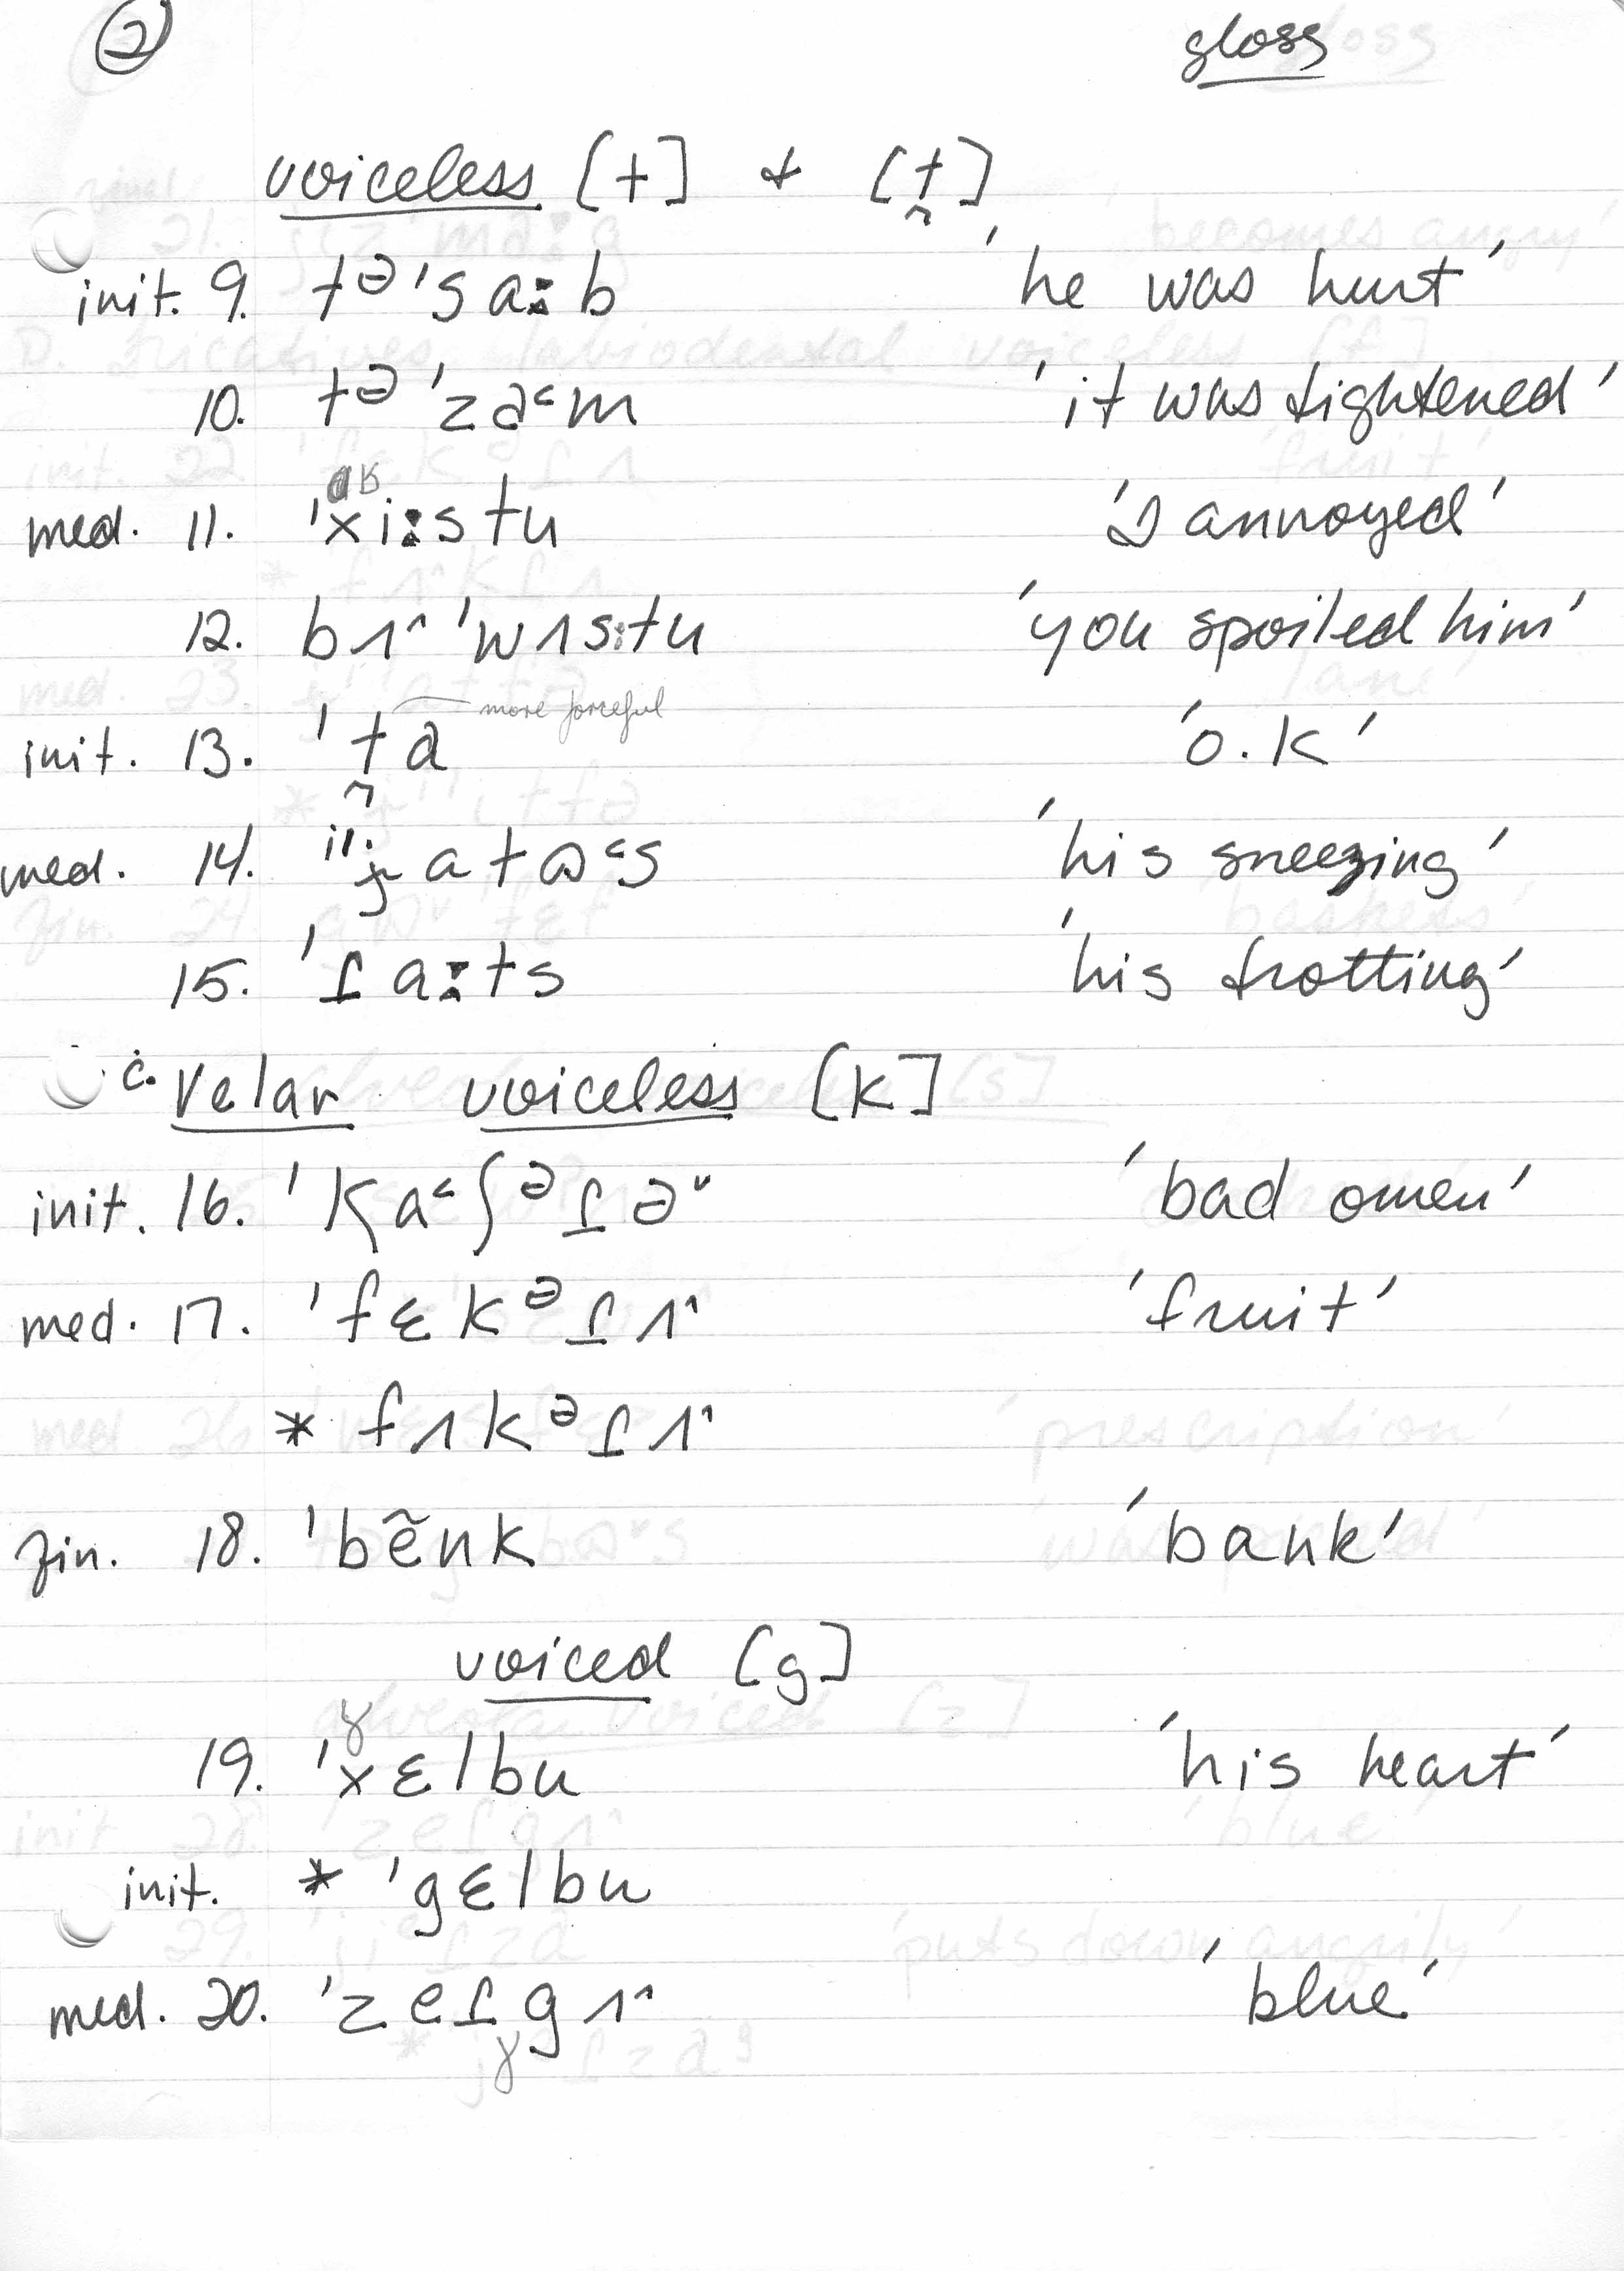 ② gloss
voiceless [t] & [t̪]
init. 9. tə'saːb 'he was hurt'
10. tə'zaᶜm 'it was tightened'
ʁ
med. 11. 'xiːstu 'I annoyed'
12. bʌ^'wʌs:tu 'you spoiled him'
more forceful
init. 13. 't̪a 'o.k'
med. 14. atɷᶜs 'his sneezing'
15. 'ɾaːts 'his trotting'
c. Velar voiceless [k]
init. 16. 'kaᶜʃᵊɾəᵛ 'bad omen'
med. 17. 'fɛkᵊɾʌ^ 'fruit'
* fʌkᵊɾʌ^
fin. 18. 'bẽnk 'bank'
voiced [g]
ɣ
19. 'xɛlbu 'his heart'
init. * 'gɛlbu
med. 20. 'zeɾgʌ^ 'blue'
ɣ